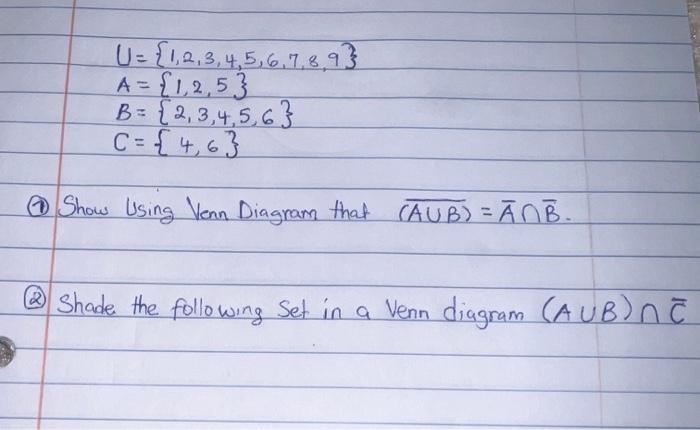 U = {1,2,3,4,5,6,7,8,9}
A = {1,2,5}
B = {2,3,4,5,6}
C = {4,6}
① Show Using Venn Diagram that (A̅∪̅B̅) = A̅∩B̅.
② Shade the following Set in a Venn diagram (A∪B)∩C̅